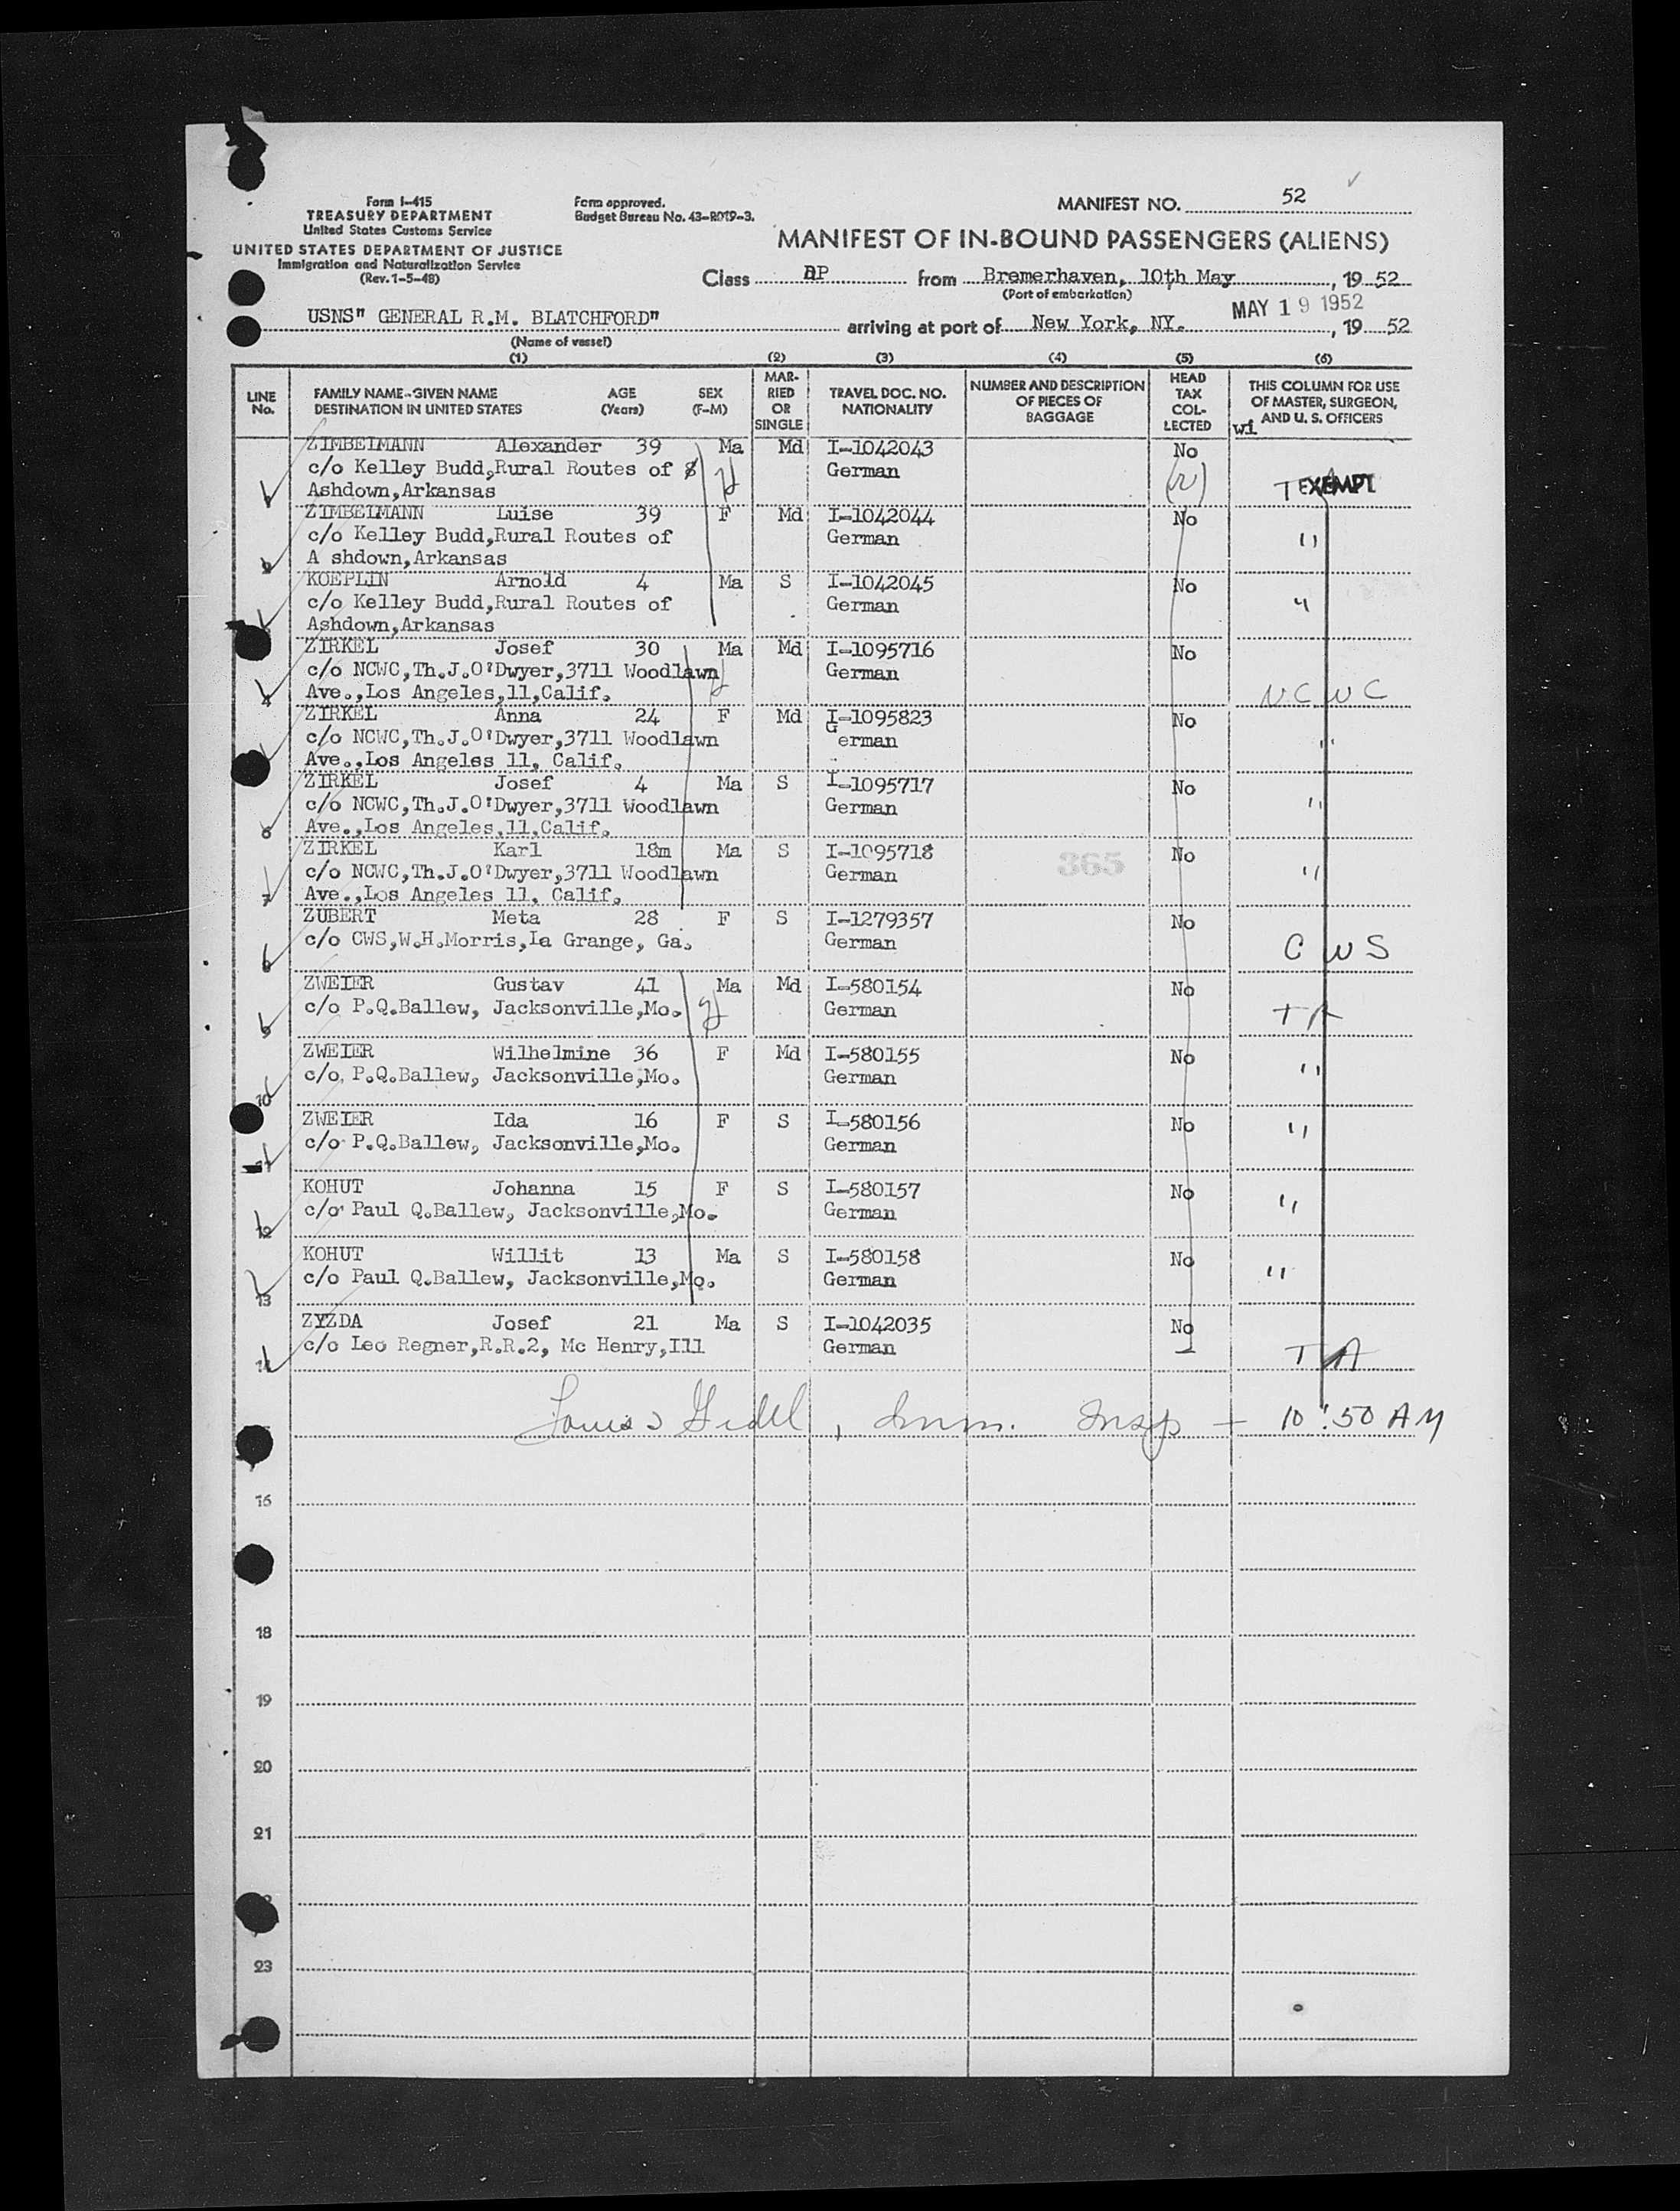 Form I-415
TREASURY DEPARTMENT
United States Customs Service
UNITED STATES DEPARTMENT OF JUSTICE
Immigration and Naturalization Service
(Rev. 1-5-48)
Form approved.
Budget Bureau No. 43-R019-3.
MANIFEST NO. 52
MANIFEST OF IN-BOUND PASSENGERS (ALIENS)
Class DP from Bremerhaven, 10th May, 19 52
(Port of embarkation)
MAY 19 1952
USNS" GENERAL R.M. BLATCHFORD" arriving at port of New York, NY., 19 52
(Name of vessel)
(1) (2) (3) (4) (5) (6)
LINE No. FAMILY NAME-GIVEN NAME DESTINATION IN UNITED STATES AGE (Years) SEX (F-M) MARRIED OR SINGLE TRAVEL DOC. NO. NATIONALITY NUMBER AND DESCRIPTION OF PIECES OF BAGGAGE HEAD TAX COLLECTED THIS COLUMN FOR USE OF MASTER, SURGEON, AND U. S. OFFICERS
wi
ZIMBELMANN Alexander 39 Ma Md I-1042043 No
c/o Kelley Budd,Rural Routes of German
Ashdown,Arkansas EXEMPT
ZIMBELMANN Luise 39 F Md I-1042044 No
c/o Kelley Budd,Rural Routes of German "
2 A shdown,Arkansas
KOEPLIN Arnold 4 Ma S I-1042045 No
c/o Kelley Budd,Rural Routes of German "
Ashdown,Arkansas
ZIRKEL Josef 30 Ma Md I-1095716 No
c/o NCWC,Th.J.O'Dwyer,3711 Woodlawn German
4 Ave.,Los Angeles,11,Calif. NCWC
ZIRKEL Anna 24 F Md I-1095823 No
c/o NCWC,Th.J.O'Dwyer,3711 Woodlawn German "
Ave.,Los Angeles 11, Calif.
ZIRKEL Josef 4 Ma S I-1095717 No
c/o NCWC,Th.J.O'Dwyer,3711 Woodlawn German "
6 Ave.,Los Angeles,11,Calif.
ZIRKEL Karl 18m Ma S I-1095718 365 No
c/o NCWC,Th.J.O'Dwyer,3711 Woodlawn German "
7 Ave.,Los Angeles 11, Calif.
ZUBERT Meta 28 F S I-1279357 No
c/o CWS,W.H.Morris,La Grange, Ga. German CWS
8
ZWEIER Gustav 41 Ma Md I-580154 No
c/o P.Q.Ballew, Jacksonville,Mo. German TA
9
ZWEIER Wilhelmine 36 F Md I-580155 No
c/o P.Q.Ballew, Jacksonville,Mo. German "
10
ZWEIER Ida 16 F S I-580156 No
c/o P.Q.Ballew, Jacksonville,Mo. German "
11
KOHUT Johanna 15 F S I-580157 No
c/o Paul Q.Ballew, Jacksonville,Mo. German "
12
KOHUT Willit 13 Ma S I-580158 No
c/o Paul Q.Ballew, Jacksonville,Mo. German "
13
ZYZDA Josef 21 Ma S I-1042035 No
c/o Leo Regner,R.R.2, Mc Henry,Ill German TA
14
Imm. Insp - 10:50 AM
16
18
19
20
21
23